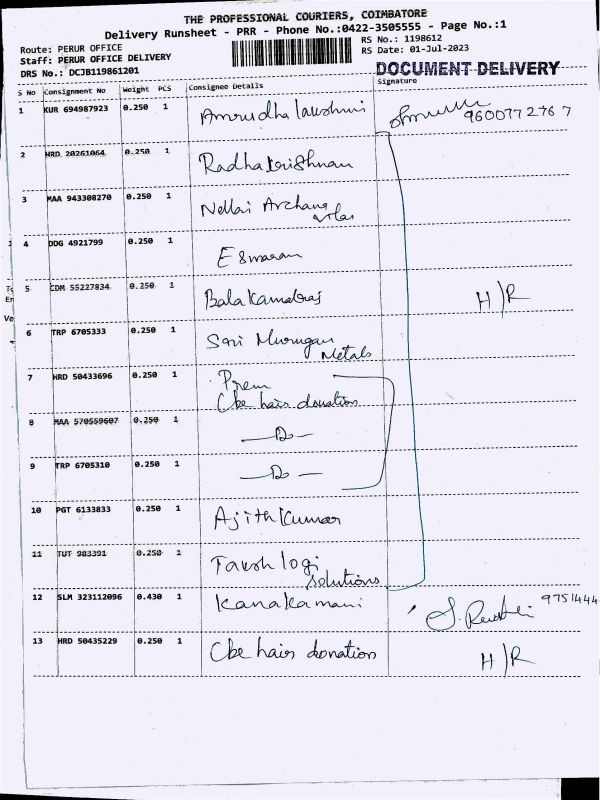 THE PROFESSIONAL COURIERS, COIMBATORE
Delivery Runsheet - PRR - Phone No.:0422-3505555 - Page No.:1
Route: PERUR OFFICE
RS No.: 1198612
Staff: PERUR OFFICE DELIVERY
RS Date: 01-Jul-2023
DRS No.: DCJB119861201
DOCUMENT DELIVERY
S No Consignment No Weight PCS Consignee Details Signature
1 KUR 694987923 0.250 1 Amrudha lakshmi 9600772767
2 HRD 20261064 0.250 1 Radhakrishnan
3 MAA 943308270 0.250 1 Nellai Archana
4 DDG 4921799 0.250 1 Eswaran
5 CDM 55227834 0.250 1 Bala Kamatraj H/R
6 TRP 6705333 0.250 1 Sari Murugan
Metals
7 HRD 50433696 0.250 1 Prem
Cbe hair donation
8 MAA 570559607 0.250 1 —Do—
9 TRP 6705310 0.250 1 —Do—
10 PGT 6133833 0.250 1 Ajithkumar
11 TUT 983391 0.250 1 logi
solutions
12 SLM 323112096 0.430 1 Kanakamani 9751444
13 HRD 50435229 0.250 1 Cbe hair donation H/R